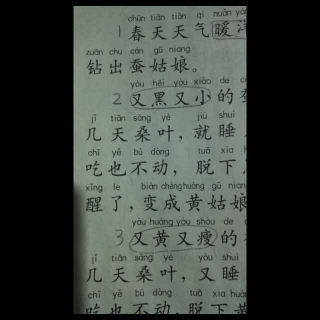 chūn tiān tiān qì nuǎn
1 春天天气暖洋
zuān chū cán gū niang
钻出蚕姑娘。
yòu hēi yòu xiǎo de
2 又黑又小的蚕
jǐ tiān sāng yè jiù shuì
几天桑叶，就睡
chī yě bú dòng tuō xia
吃也不动，脱下
xǐng le biàn chéng huáng gū niang
醒了，变成黄姑娘
yòu huáng yòu shòu de
3 又黄又瘦的
jǐ tiān sāng yè yòu shuì
几天桑叶，又睡
chī yě bú dòng tuō xia
吃也不动，脱下